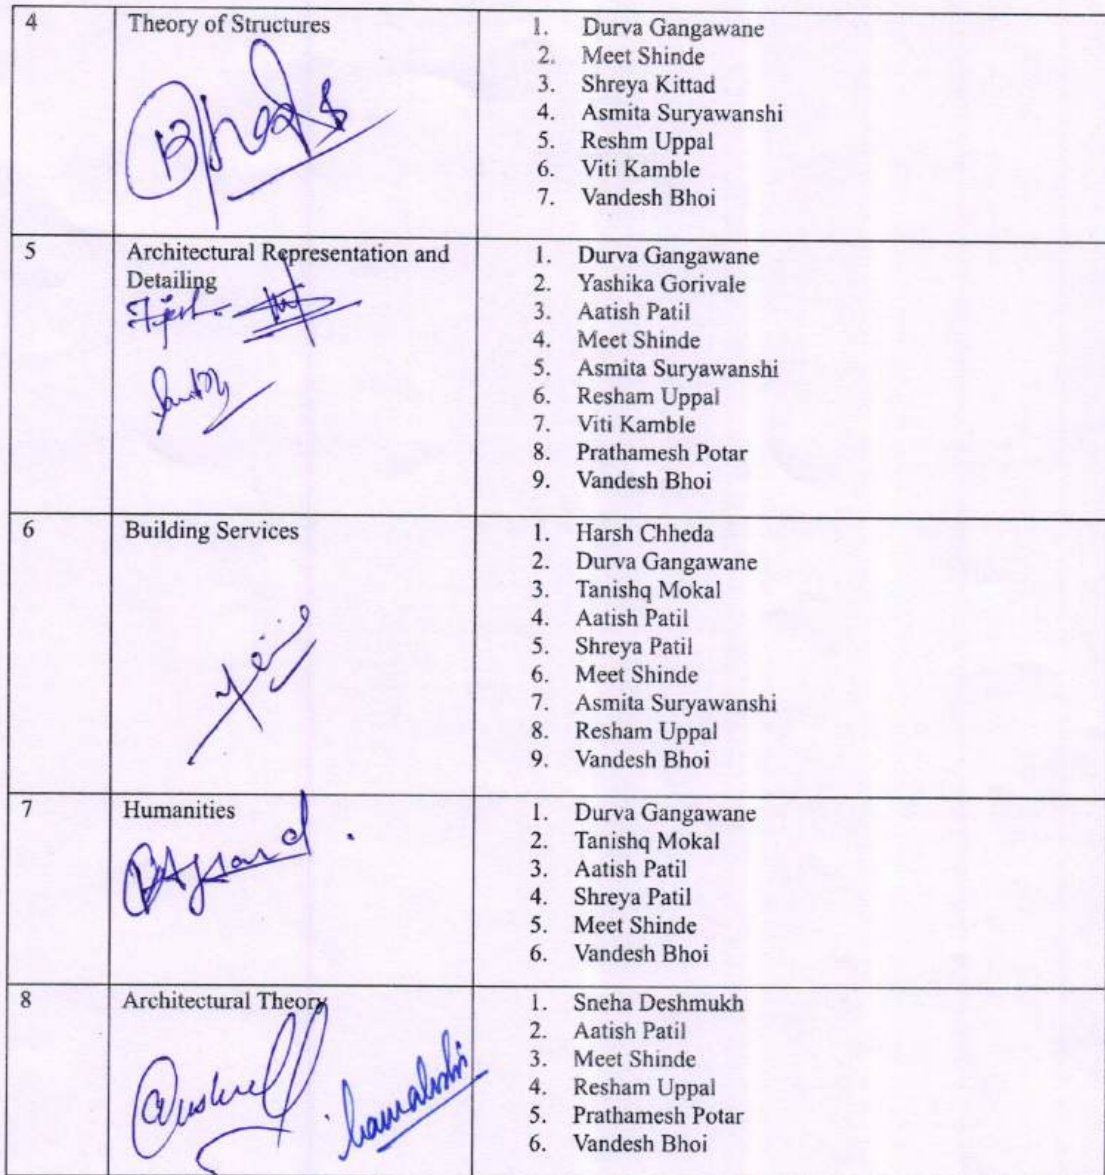 4
Theory of Structures
1. Durva Gangawane
2. Meet Shinde
3. Shreya Kittad
4. Asmita Suryawanshi
5. Reshm Uppal
6. Viti Kamble
7. Vandesh Bhoi
5
Architectural Representation and
Detailing
1. Durva Gangawane
2. Yashika Gorivale
3. Aatish Patil
4. Meet Shinde
5. Asmita Suryawanshi
6. Resham Uppal
7. Viti Kamble
8. Prathamesh Potar
9. Vandesh Bhoi
6
Building Services
1. Harsh Chheda
2. Durva Gangawane
3. Tanishq Mokal
4. Aatish Patil
5. Shreya Patil
6. Meet Shinde
7. Asmita Suryawanshi
8. Resham Uppal
9. Vandesh Bhoi
7
Humanities
1. Durva Gangawane
2. Tanishq Mokal
3. Aatish Patil
4. Shreya Patil
5. Meet Shinde
6. Vandesh Bhoi
8
Architectural Theory
1. Sneha Deshmukh
2. Aatish Patil
3. Meet Shinde
4. Resham Uppal
5. Prathamesh Potar
6. Vandesh Bhoi